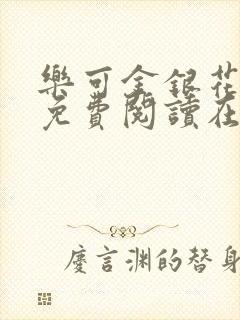 樂可金銀花
免費閱讀在
慶言淵的替身